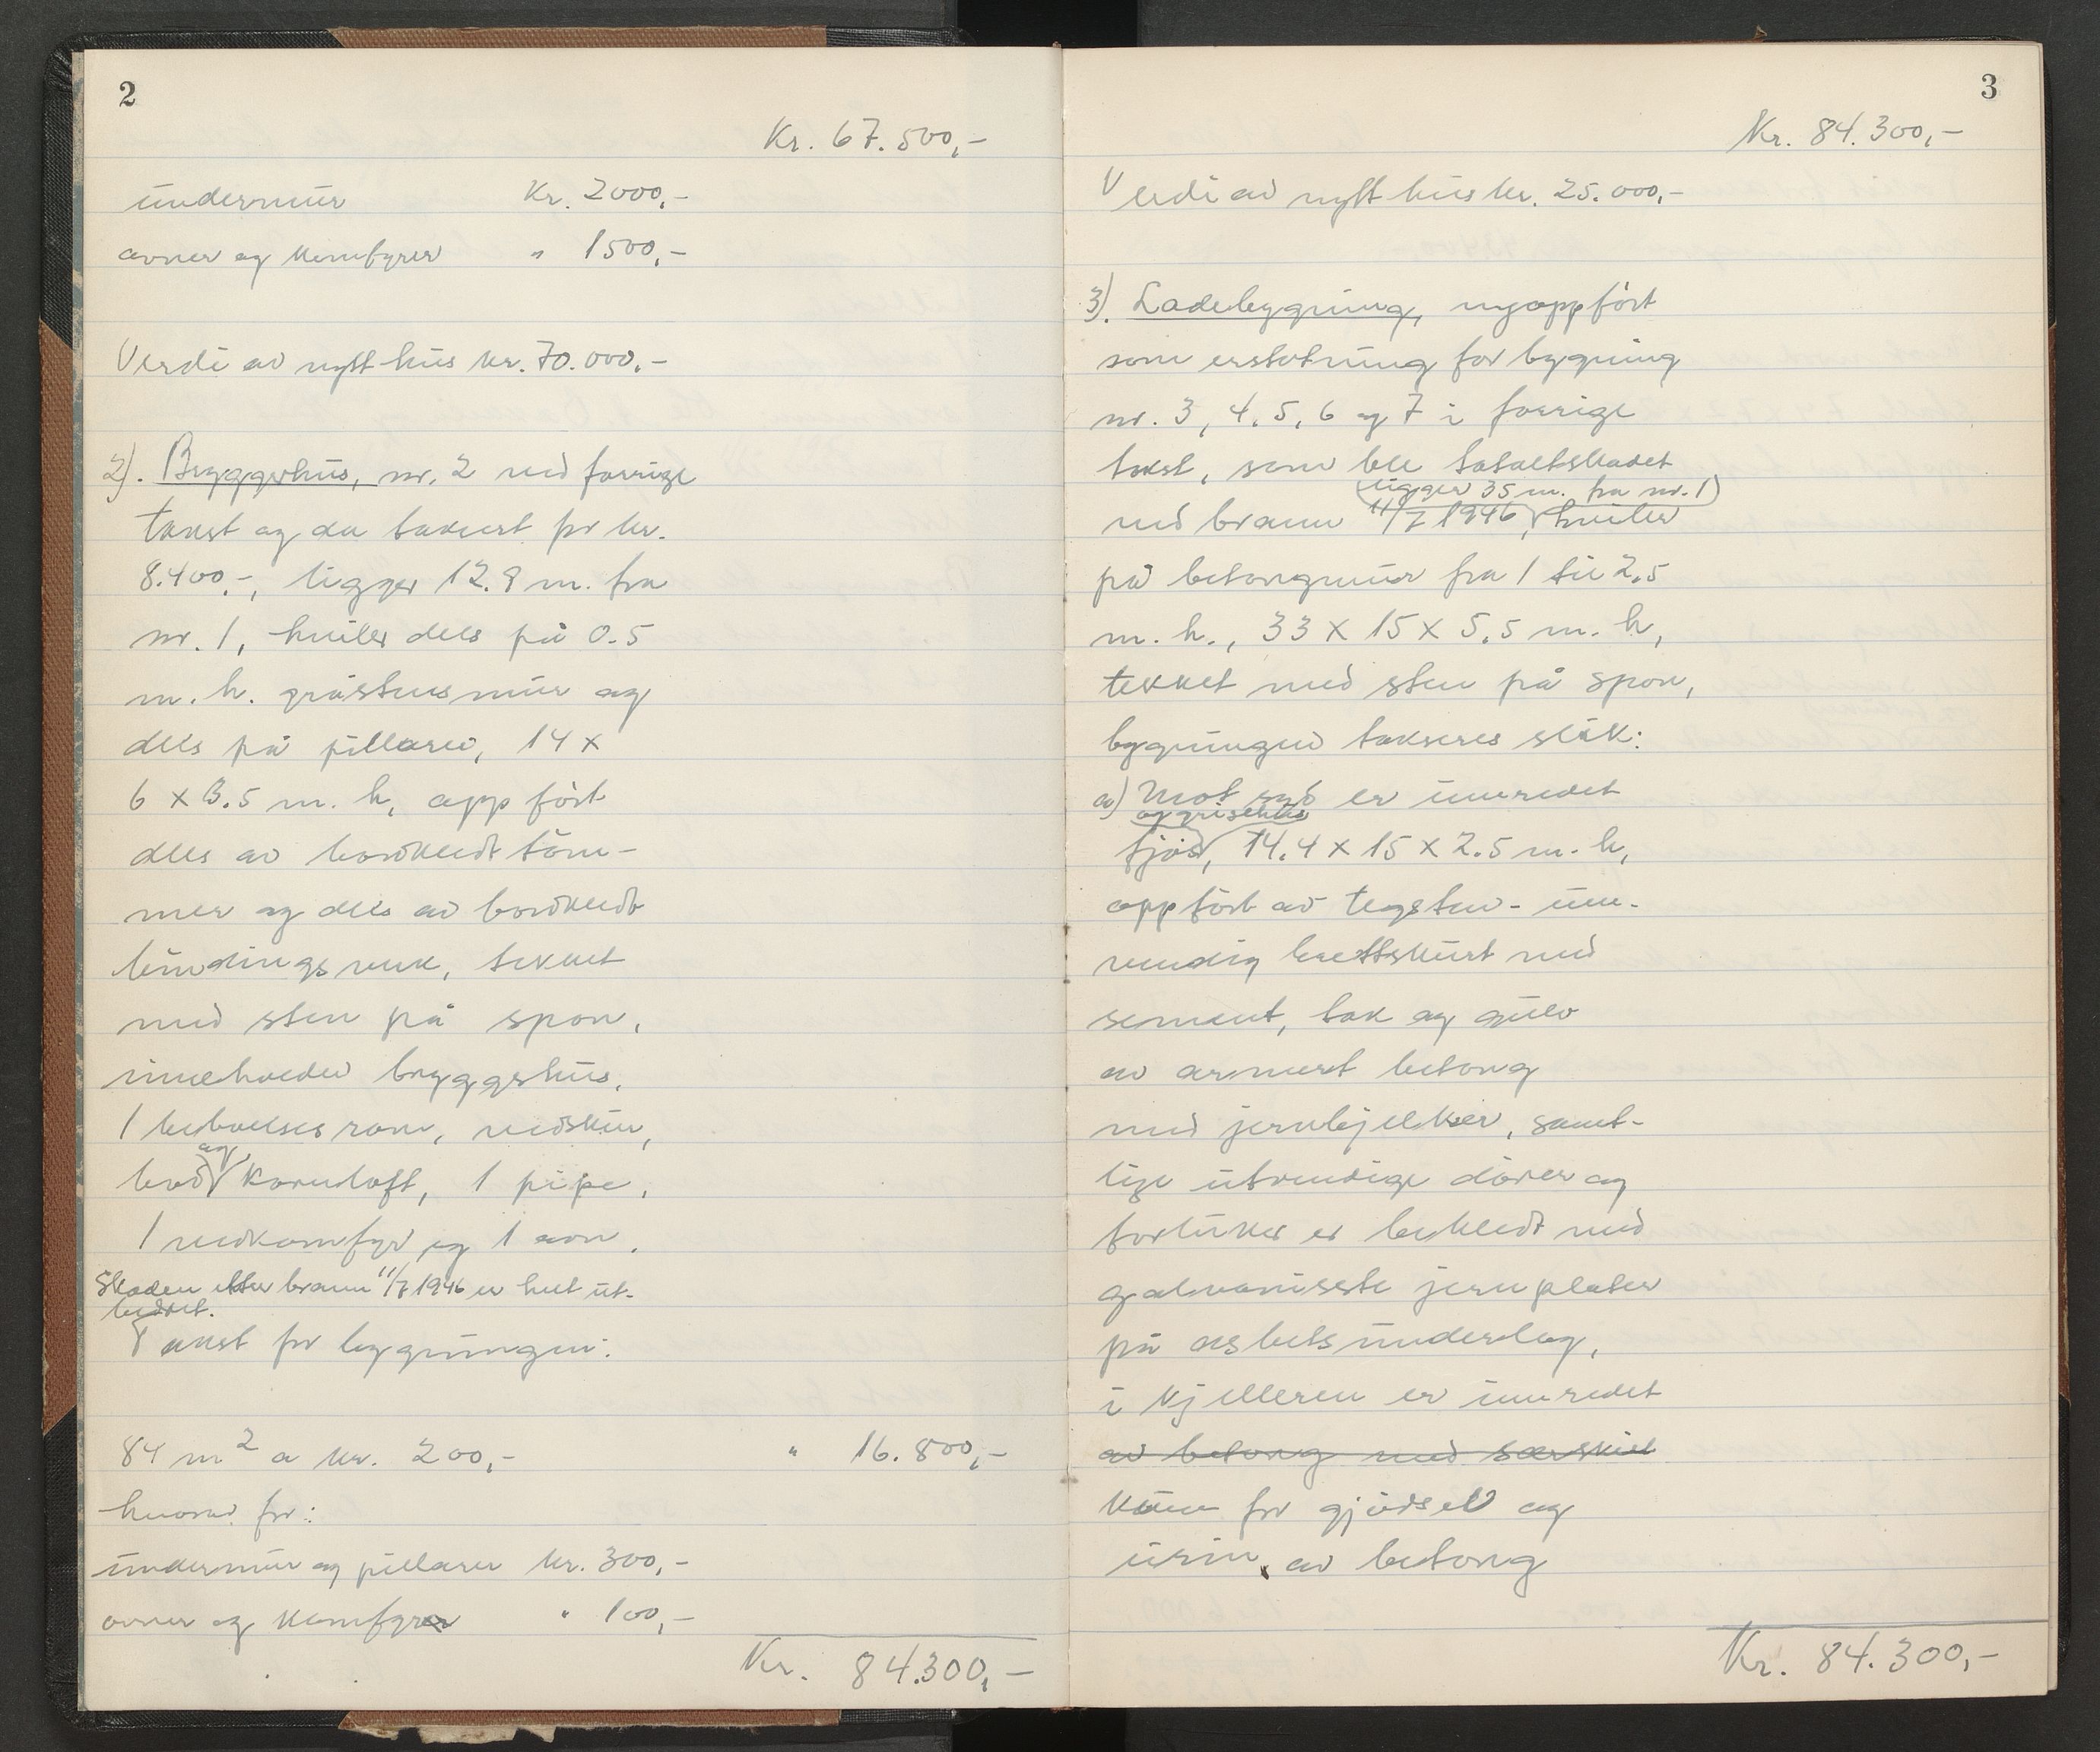 2
Kr. 67.500,-
undermur Kr. 2000,-
ovner og komfyrer " 1500,-
Verdi av nytt hus kr. 70.000,-
2). Bryggerhus, nr. 2 ved forrige
takst og da taksert for kr.
8.400,-, ligger 12.8 m. fra
nr. 1, hviler dels på 0.5
m. h. gråstensmur og
dels på pillarer, 14 x
6 x 3.5 m. h, oppført
dels av bordkledt töm-
mer og dels av bordkledt
bindingsverk, tekket
med sten på spon,
inneholder bryggerhus,
1 beboelsesrom, vedskur,
bod og kornloft, 1 pipe,
1 vedkomfyr og 1 ovn.
Skaden etter brann 11/7 1946 er helt ut-
bedret.
Takst for bygningen:
84 m2 a kr. 200,- " 16.800,-
hvorav for:
undermur og pillarer kr. 300,-
ovner og komfyrer " 100,-
Kr. 84.300,-
3
Kr. 84.300,-
Verdi av nytt hus kr. 25.000,-
3). Ladebygning, nyoppfört
som erstatning for bygning
nr. 3, 4, 5, 6 og 7 i forrige
takst, som ble totaltskadet
(ligger 35 m. fra nr. 1)
ved brann 11/7 1946, hviler
på betongmur fra 1 til 2,5
m. h., 33 x 15 x 5.5 m. h,
tekket med sten på spon,
bygningen takseres slik:
a) Mot syd er innredet
og grisehus
fjös, 14.4 x 15 x 2.5 m. h,
oppfört av tegsten - inn-
vendig brettskurt med
sement, tak og gulv
av armert betong
med jernbjelker, samt-
lige utvendige dörer og
forluker er bekledt med
galvaniserte jernplater
på asbetsunderlag,
i kjelleren er innredet
av betong med særskilt
kum for gjödsel og
urin, av betong
Kr. 84.300,-